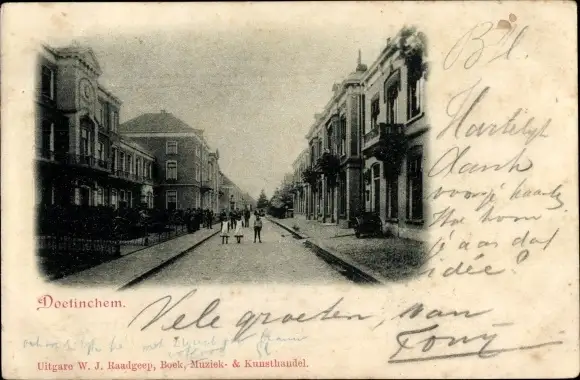 Hartelijk
dank
voor je kaart,
Hoe kom
je aan dat
idée?
Doetinchem.
Vele groeten, van
Tony
Uitgave W. J. Raadgeep, Boek, Muziek- & Kunsthandel.